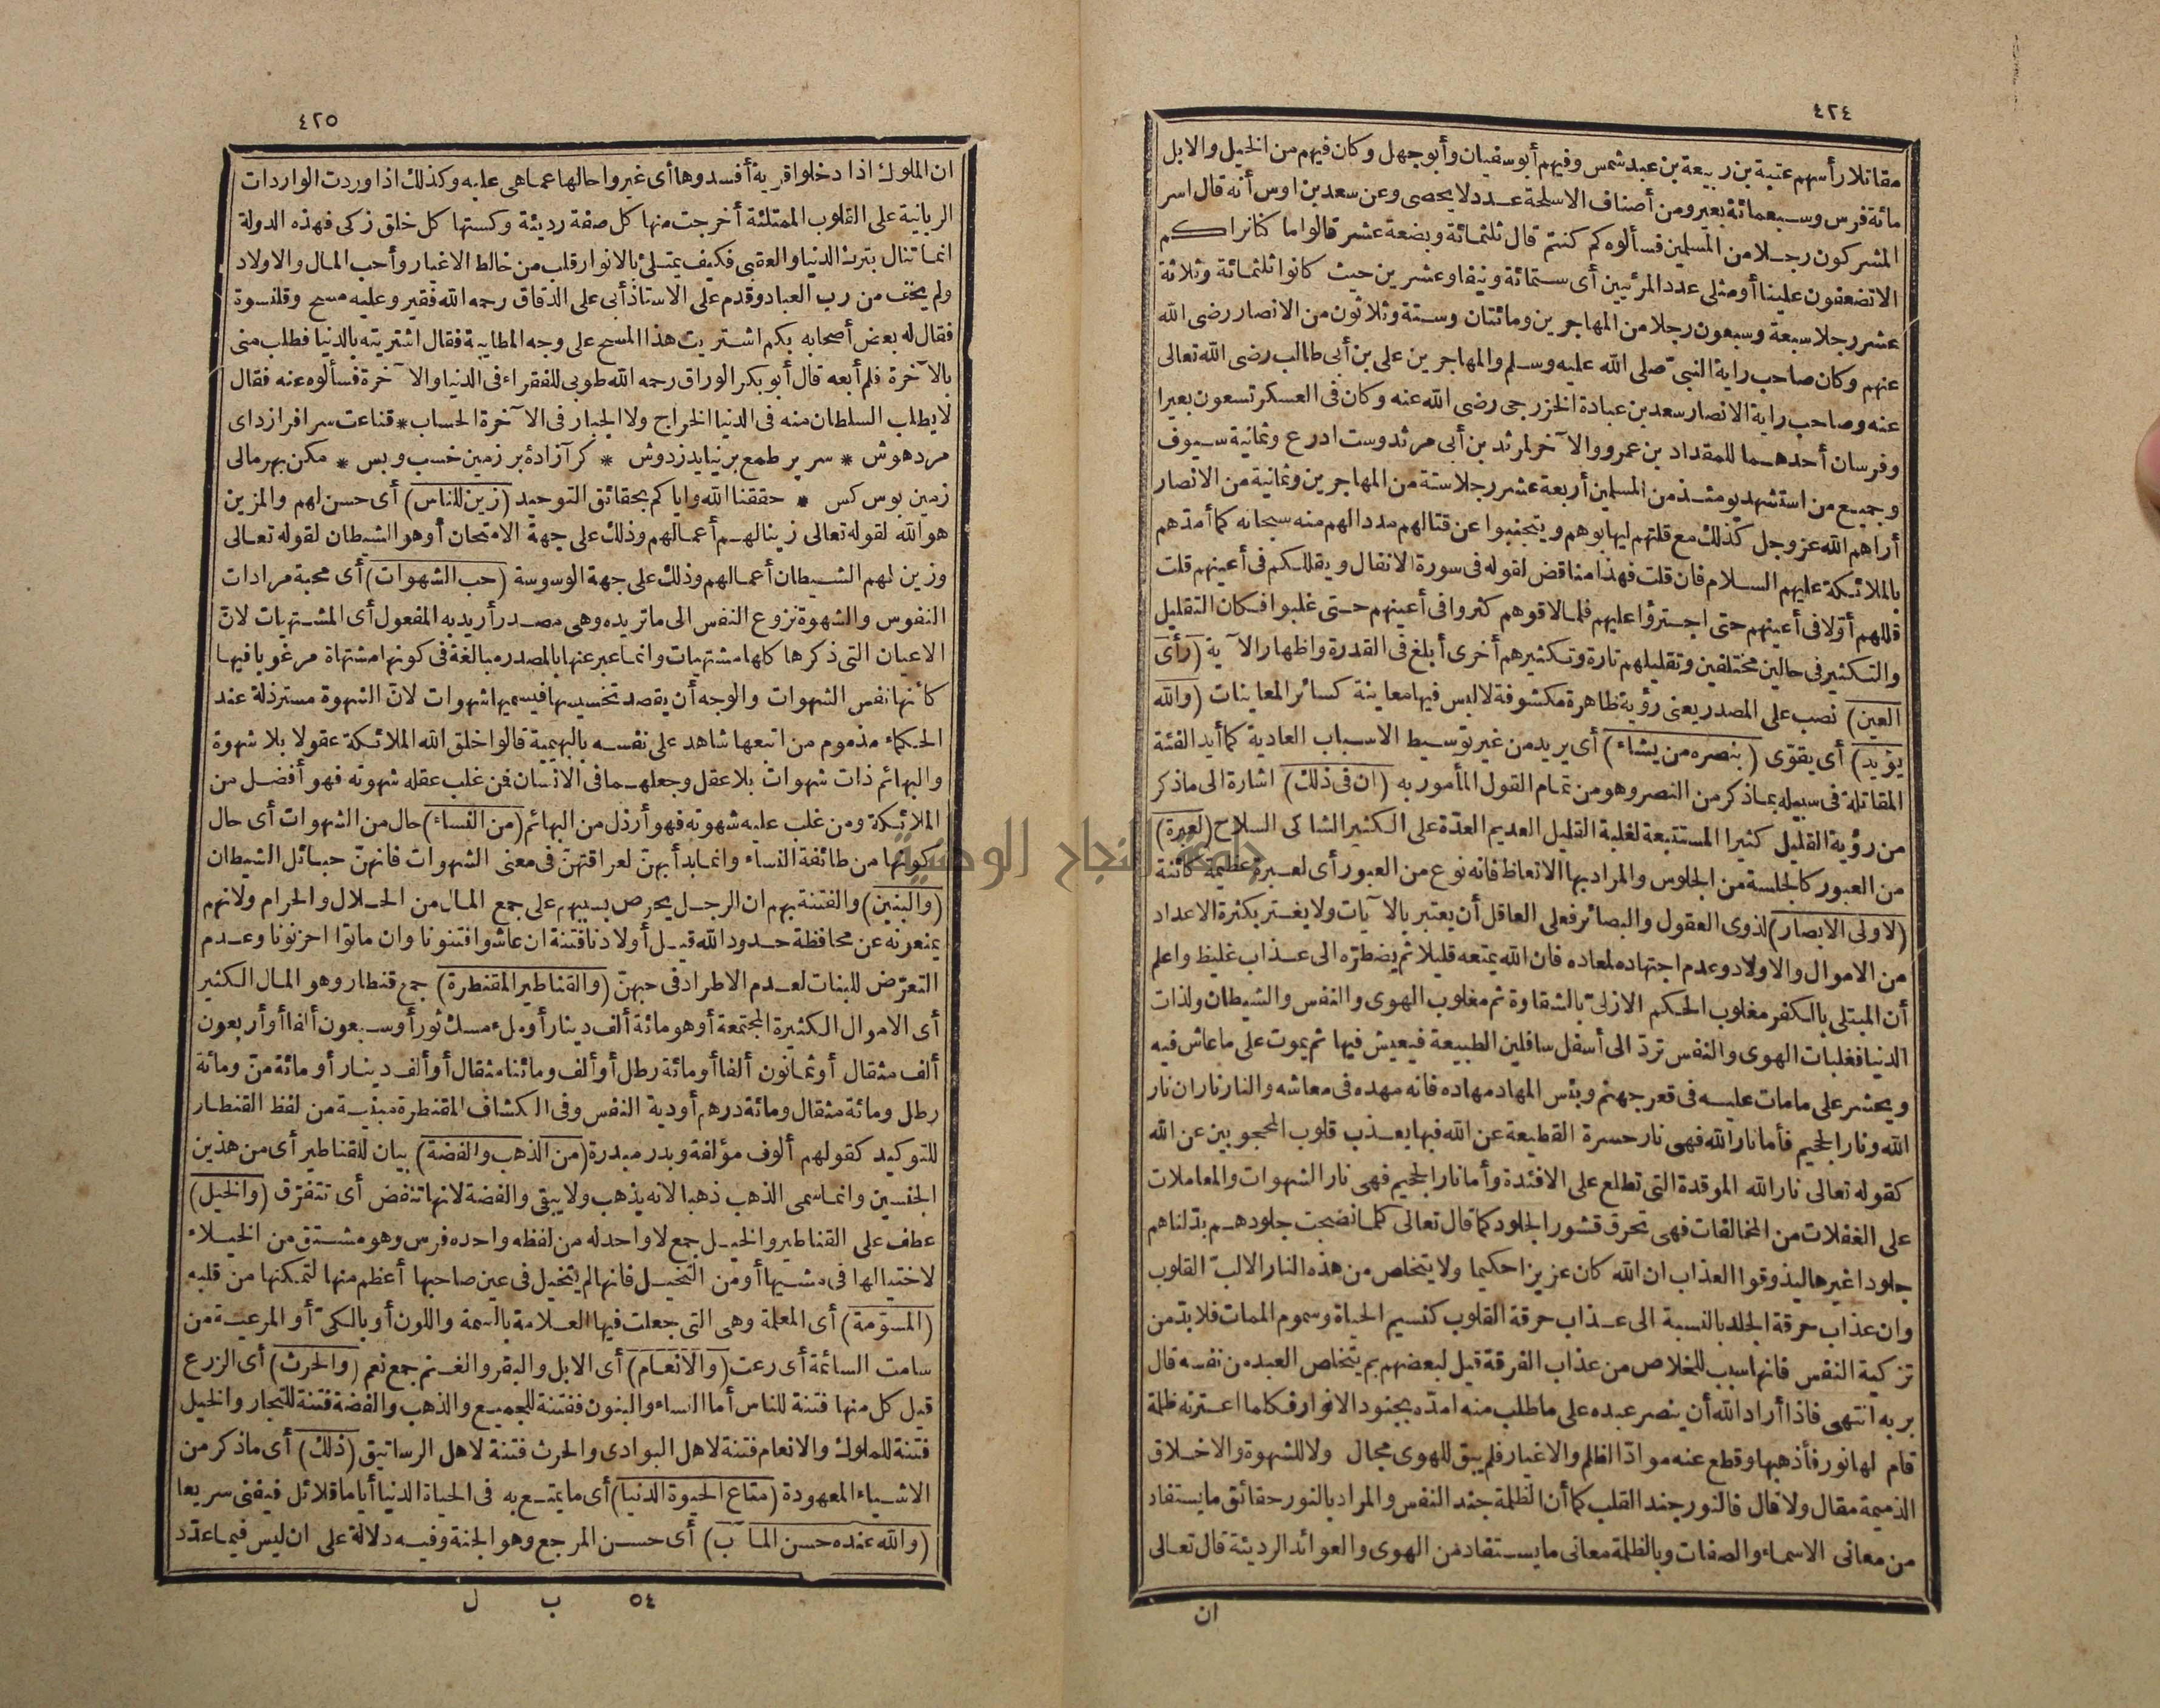 ٤٢٤
مقاتلا رأسهم عتبة بن ربيعة بن عبد شمس وفيهم أبو سفيان وأبو جهل وكان فيهم من الخيل والابل
مائة فرس وسبعمائة بعير ومن أصناف الاسلحة عدد لا يحصى وعن سعد بن اوس أنه قال اسر
المشركون رجلا من المسلمين فسألوه كم كنتم قال ثلثمائة وبضعة عشر قالوا ما كنا نراكم
الا تضعفون علينا أو مثلى عدد المرئيين أى ستمائة ونيفا وعشرين حيث كانوا ثلثمائة وثلاثة
عشر رجلا سبعة وسبعون رجلا من المهاجرين ومائتان وستة وثلاثون من الانصار رضى الله
عنهم وكان صاحب راية النبىّ صلى الله عليه وسلم والمهاجرين على بن أبى طالب رضى الله تعالى
عنه وصاحب راية الانصار سعد بن عبادة الخزرجى رضى الله عنه وكان فى العسكر تسعون بعيرا
وفرسان أحدهما للمقداد بن عمرو والآخر لمرثد بن أبى مرثد وست ادرع وثمانية سيوف
وجميع من استشهد يومئذ من المسلمين أربعة عشر رجلا ستة من المهاجرين وثمانية من الانصار
أراهم الله عز وجل كذلك مع قلتهم ليهابوهم ويتجنبوا عن قتالهم مددا لهم منه سبحانه كما أمدّهم
بالملائكة عليهم السلام فان قلت فهذا مناقض لقوله فى سورة الانفال ويقللكم فى أعينهم قلت
قللهم أوّلا فى أعينهم حتى اجترؤا عليهم فلما لاقوهم كثروا فى أعينهم حتى غلبوا فكان التقليل
والتكثير فى حالين مختلفين وتقليلهم تارة وتكثيرهم أخرى أبلغ فى القدرة واظهار الآية (رأى
العين) نصب على المصدر يعنى رؤية ظاهرة مكشوفة لا لبس فيها معاينة كسائر المعاينات (والله
يؤيد) أى يقوّى (بنصره من يشاء) أى يريد من غير توسيط الاسباب العادية كما أيد الفئة
المقاتلة فى سبيله بما ذكر من النصر وهو من تمام القول المأمور به (ان فى ذلك) اشارة الى ما ذكر
من رؤية القليل كثيرا المستتبعة لغلبة القليل العديم العدّة على الكثير الشاكى السلاح (لعبرة)
من العبور كالجلسة من الجلوس والمراد بها الاتعاظ فانه نوع من العبور أى لعبرة عظيمة كائنة
(لاولى الابصار) لذوى العقول والبصائر فعلى العاقل أن يعتبر بالآيات ولا يغتر بكثرة الاعداد
من الاموال والاولاد وعدم اجتهاده لمعاده فان الله يمتعه قليلا ثم يضطرّه الى عذاب غليظ واعلم
أن المبتلى بالكفر مغلوب الحكم الازلىّ بالشقاوة ثم مغلوب الهوى والنفس والشيطان ولذات
الدنيا فغلبات الهوى والنفس تردّ الى أسفل سافلين الطبيعة فيعيش فيها ثم يموت على ما عاش فيه
ويحشر على ما مات عليه فى قعر جهنم وبئس المهاد مهاده فانه مهده فى معاشه والنار ناران نار
الله ونار الجحيم فأما نار الله فهى نار حسرة القطيعة عن الله فيها يعذب قلوب المحجوبين عن الله
كقوله تعالى نار الله الموقدة التى تطلع على الافئدة وأما نار الجحيم فهى نار الشهوات والمعاملات
على الغفلات من المخالفات فهى تحرق قشور الجلود كما قال تعالى كلما نضجت جلودهم بدّلناهم
جلودا غيرها ليذوقوا العذاب ان الله كان عزيزا حكيما ولا يتخلص من هذه النار الا لبّ القلوب
وان عذاب حرقة الجلد بالنسبة الى عذاب حرقة القلوب كنسيم الحياة وسموم الممات فلا بدّ من
تزكية النفس فانها سبب للخلاص من عذاب الفرقة قيل لبعضهم بم يتخلص العبد من نفسه قال
بربه انتهى فاذا أراد الله أن ينصر عبده على ما طلب منه امدّه بجنود الانوار فكلما اعترته ظلمة
قام لها نور فأذهبها وقطع عنه موادّ الظلم والاغيار فلم يبق للهوى مجال ولا للشهوة والاخلاق
الذميمة مقال ولا قال فالنور جند القلب كما أن الظلمة جند النفس والمراد بالنور حقائق ما يستفاد
من معانى الاسماء والصفات وبالظلمة معانى ما يستفاد من الهوى والعوائد الرديئة قال تعالى
ان
٤٢٥
ان الملوك اذا دخلوا قرية أفسدوها أى غيروا حالها عما هى عليه وكذلك اذا وردت الواردات
الربانية على القلوب الممتلئة أخرجت منها كل صفة رديئة وكستها كل خلق زكى فهذه الدولة
انما تنال بترك الدنيا والعقبى فكيف يمتلئ بالانوار قلب من خالط الاغيار وأحب المال والاولاد
ولم يخف من رب العباد وقدم على الاستاذ أبى على الدقاق رحمه الله فقير وعليه مسح وقلنسوة
فقال له بعض أصحابه بكم اشتريت هذا المسح على وجه المطايبة فقال اشتريته بالدنيا فطلب منى
بالآخرة فلم أبعه قال أبو بكر الوراق رحمه الله طوبى للفقراء فى الدنيا والآخرة فسألوه عنه فقال
لا يطلب السلطان منه فى الدنيا الخراج ولا الجبار فى الآخرة الحساب * قناعت سر افرازد اى
مرد هوش * سر پر طمع بر نيايد زدوش * كر آزادهٔ بر زمين خسب وبس * مكن بهر مالى
زمين بوس كس * حققنا الله واياكم بحقائق التوحيد (زين للناس) أى حسن لهم والمزين
هو الله لقوله تعالى زينا لهم أعمالهم وذلك على جهة الامتحان أو هو الشيطان لقوله تعالى
وزين لهم الشيطان أعمالهم وذلك على جهة الوسوسة (حب الشهوات) أى محبة مرادات
النفوس والشهوة نزوع النفس الى ما تريده وهى مصدر أريد به المفعول أى المشتهيات لانّ
الاعيان التى ذكرها كلها مشتهيات وانما عبر عنها بالمصدر مبالغة فى كونها مشتهاة مرغوبا فيها
كأنها نفس الشهوات والوجه أن يقصد تخسيسها فيسميها شهوات لانّ الشهوة مسترذلة عند
الحكماء مذموم من اتبعها شاهد على نفسه بالبهيمية قالوا خلق الله الملائكة عقولا بلا شهوة
والبهائم ذات شهوات بلا عقل وجعلهما فى الانسان فمن غلب عقله شهوته فهو أفضل من
الملائكة ومن غلب عليه شهوته فهو أرذل من البهائم (من النساء) حال من الشهوات أى حال
كونها من طائفة النساء وانما بدأ بهنّ لعراقتهنّ فى معنى الشهوات فانهنّ حبائل الشيطان
(والبنين) والفتنة بهم ان الرجل يحرص بسببهم على جمع المال من الحلال والحرام ولانهم
يمنعونه عن محافظة حدود الله قيل أولادنا فتنة ان عاشوا فتنونا وان ماتوا احزنونا وعدم
التعرّض للبنات لعدم الاطراد فى حبهنّ (والقناطير المقنطرة) جمع قنطار وهو المال الكثير
أى الاموال الكثيرة المجتمعة أو هو مائة ألف دينار أو ملء مسك ثور أو سبعون ألفا أو أربعون
ألف مثقال أو ثمانون ألفا أو مائة رطل أو ألف ومائتا مثقال أو ألف دينار أو مائة منّ ومائة
رطل ومائة مثقال ومائة درهم أو دية النفس وفى الكشاف المقنطرة مبنية من لفظ القنطار
للتوكيد كقولهم ألوف مؤلفة وبدر مبدرة (من الذهب والفضة) بيان للقناطير أى من هذين
الجنسين وانما سمى الذهب ذهبا لانه يذهب ولا يبقى والفضة لانها تنفض أى تتفرّق (والخيل)
عطف على القناطير والخيل جمع لا واحد له من لفظه واحده فرس وهو مشتق من الخيلاء
لاختيالها فى مشيها أو من التخيل فانها لم يتخيل فى عين صاحبها أعظم منها لتمكنها من قلبه
(المسوّمة) أى المعلمة وهى التى جعلت فيها العلامة بالسمة واللون أو بالكىّ أو المرعية من
سامت السائمة أى رعت (والانعام) أى الابل والبقر والغنم جمع نعم (والحرث) أى الزرع
قيل كل منها فتنة للناس أما النساء والبنون ففتنة للجميع والذهب والفضة فتنة للتجار والخيل
فتنة للملوك والانعام فتنة لاهل البوادى والحرث فتنة لاهل الرساتيق (ذلك) أى ما ذكر من
الاشياء المعهودة (متاع الحيوة الدنيا) أى ما يتمتع به فى الحياة الدنيا أياما قلائل فيفنى سريعا
(والله عنده حسن المآب) أى حسن المرجع وهو الجنة وفيه دلالة على ان ليس فيما عدّد
٥٤ ب ل
جامعة النجاح الوطنية